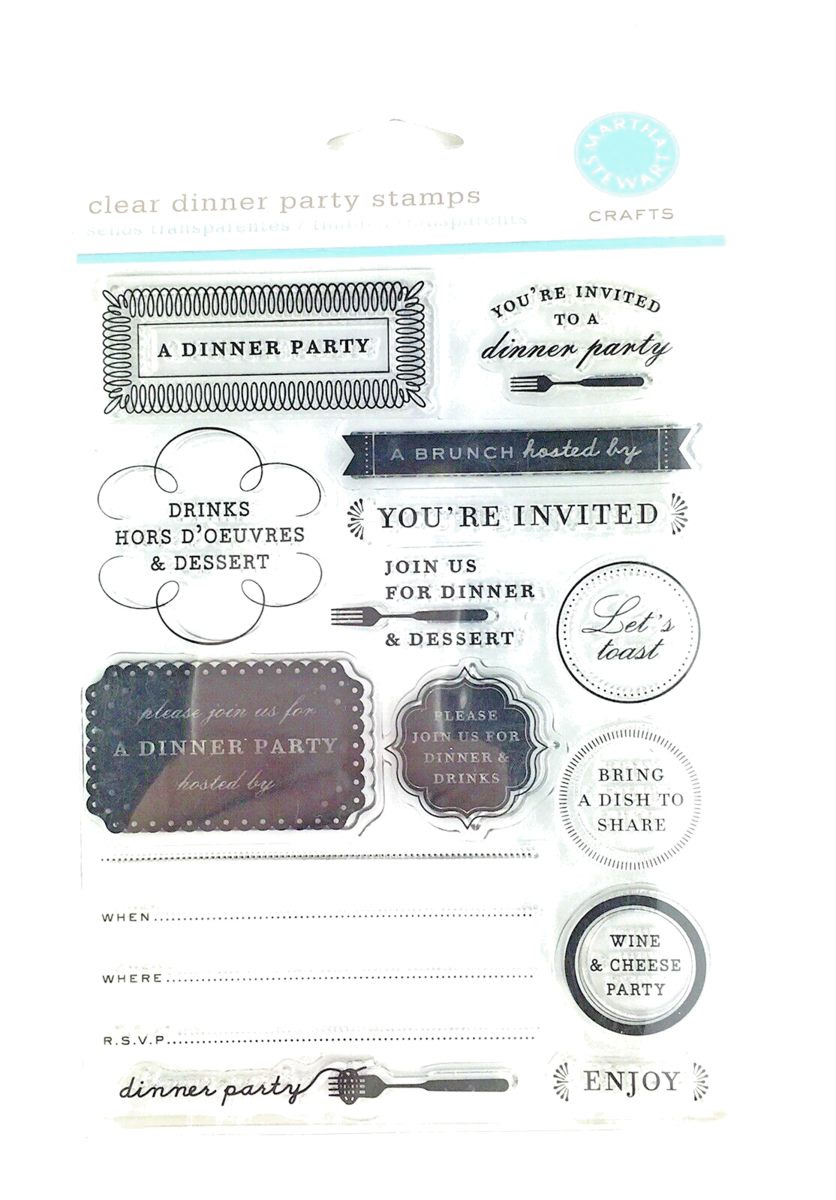 MARTHA
STEWART
CRAFTS
clear dinner party stamps
transparentes /
A DINNER PARTY
YOU'RE INVITED
TO A
dinner party
A BRUNCH hosted by
DRINKS
HORS D'OEUVRES
& DESSERT
YOU'RE INVITED
JOIN US
FOR DINNER
& DESSERT
Let's
toast
please join us for
A DINNER PARTY
hosted by
PLEASE
JOIN US FOR
DINNER &
DRINKS
BRING
A DISH TO
SHARE
WHEN
WHERE
R.S.V.P.
WINE
& CHEESE
PARTY
dinner party
ENJOY